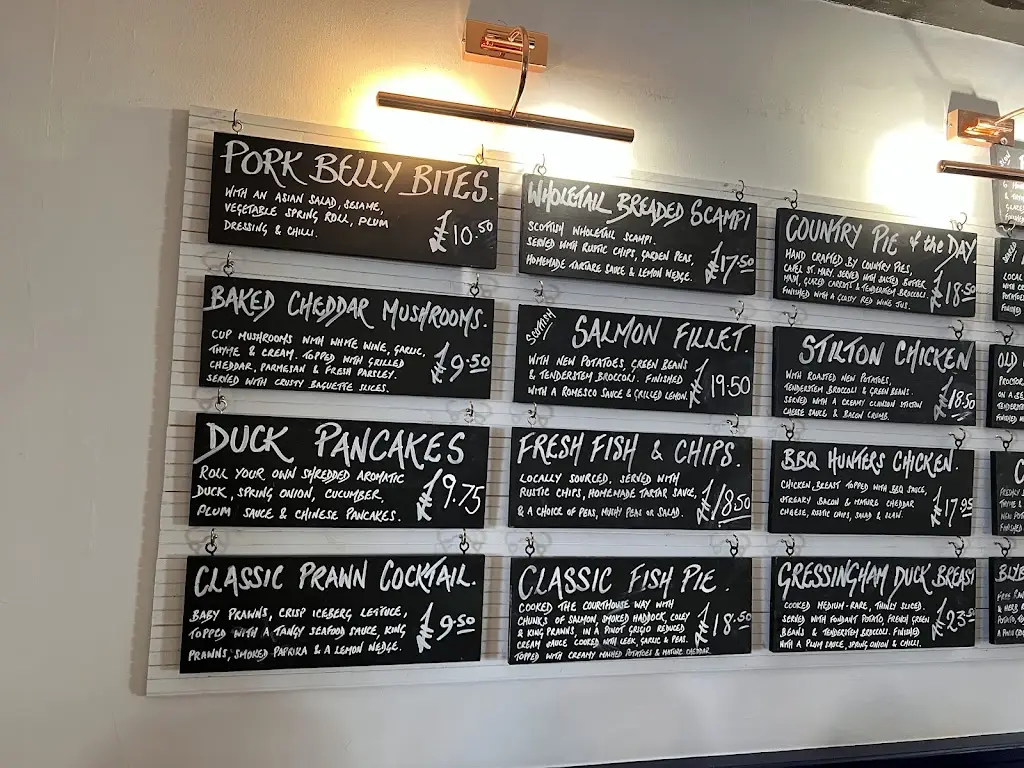 PORK BELLY BITES.
WITH AN ASIAN SALAD, SESAME,
VEGETABLE SPRING ROLL, PLUM
DRESSING & CHILLI.
£10.50
BAKED CHEDDAR MUSHROOMS.
CUP MUSHROOMS WITH WHITE WINE, GARLIC,
THYME & CREAM. TOPPED WITH GRILLED
CHEDDAR, PARMESAN & FRESH PARSLEY.
SERVED WITH CRUSTY BAGUETTE SLICES.
£9.50
DUCK PANCAKES
ROLL YOUR OWN SHREDDED AROMATIC
DUCK, SPRING ONION, CUCUMBER,
PLUM SAUCE & CHINESE PANCAKES.
£9.75
CLASSIC PRAWN COCKTAIL.
BABY PRAWNS, CRISP ICEBERG LETTUCE,
TOPPED WITH A TANGY SEAFOOD SAUCE, KING
PRAWNS, SMOKED PAPRIKA & A LEMON WEDGE.
£9.50
WHOLETAIL BREADED SCAMPI
SCOTTISH WHOLETAIL SCAMPI.
SERVED WITH RUSTIC CHIPS, GARDEN PEAS,
HOMEMADE TARTARE SAUCE & LEMON WEDGE.
£17.50
SCOTTISH
SALMON FILLET.
WITH NEW POTATOES, GREEN BEANS
& TENDERSTEM BROCCOLI. FINISHED
WITH A ROMESCO SAUCE & GRILLED LEMON.
£19.50
FRESH FISH & CHIPS.
LOCALLY SOURCED. SERVED WITH
RUSTIC CHIPS, HOMEMADE TARTAR SAUCE,
& A CHOICE OF PEAS, MUSHY PEAS OR SALAD.
£18.50
CLASSIC FISH PIE.
COOKED THE COURTHOUSE WAY WITH
CHUNKS OF SALMON, SMOKED HADDOCK, COLEY
& KING PRAWNS, IN A PINOT GRIGIO REDUCED
CREAM SAUCE COOKED WITH LEEK, GARLIC & PEAS.
TOPPED WITH CREAMY MASHED POTATOES & MATURE CHEDDAR.
£18.50
COUNTRY PIE of the DAY
HAND CRAFTED BY COUNTRY PIES,
CAPEL ST. MARY. SERVED WITH SALTED BUTTER
MASH, GLAZED CARROTS & TENDERSTEM BROCCOLI.
FINISHED WITH A GLOSSY RED WINE JUS.
£18.50
STILTON CHICKEN
WITH ROASTED NEW POTATOES,
TENDERSTEM BROCCOLI & GREEN BEANS.
SERVED WITH A CREAMY CLAWSON STILTON
CHEESE SAUCE & BACON CRUMB.
£18.50
BBQ HUNTERS CHICKEN.
CHICKEN BREAST TOPPED WITH BBQ SAUCE,
STREAKY BACON & MATURE CHEDDAR
CHEESE, RUSTIC CHIPS, SALAD & SLAW.
£17.95
GRESSINGHAM DUCK BREAST
COOKED MEDIUM-RARE, THINLY SLICED.
SERVED WITH FONDANT POTATO, FRENCH GREEN
BEANS & TENDERSTEM BROCCOLI. FINISHED
WITH A PLUM SAUCE, SPRING ONION & CHILLI.
£23.50
LOCAL
OLD